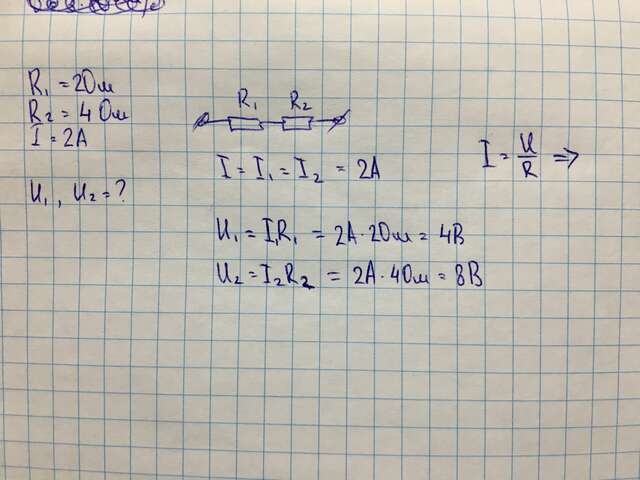 R₁ = 2 Ом
R₂ = 4 Ом
I = 2А
U₁, U₂ = ?
R₁ R₂
I = I₁ = I₂ = 2А
I = U/R ⇒
U₁ = I₁R₁ = 2А · 2 Ом = 4В
U₂ = I₂R₂ = 2А · 4 Ом = 8В